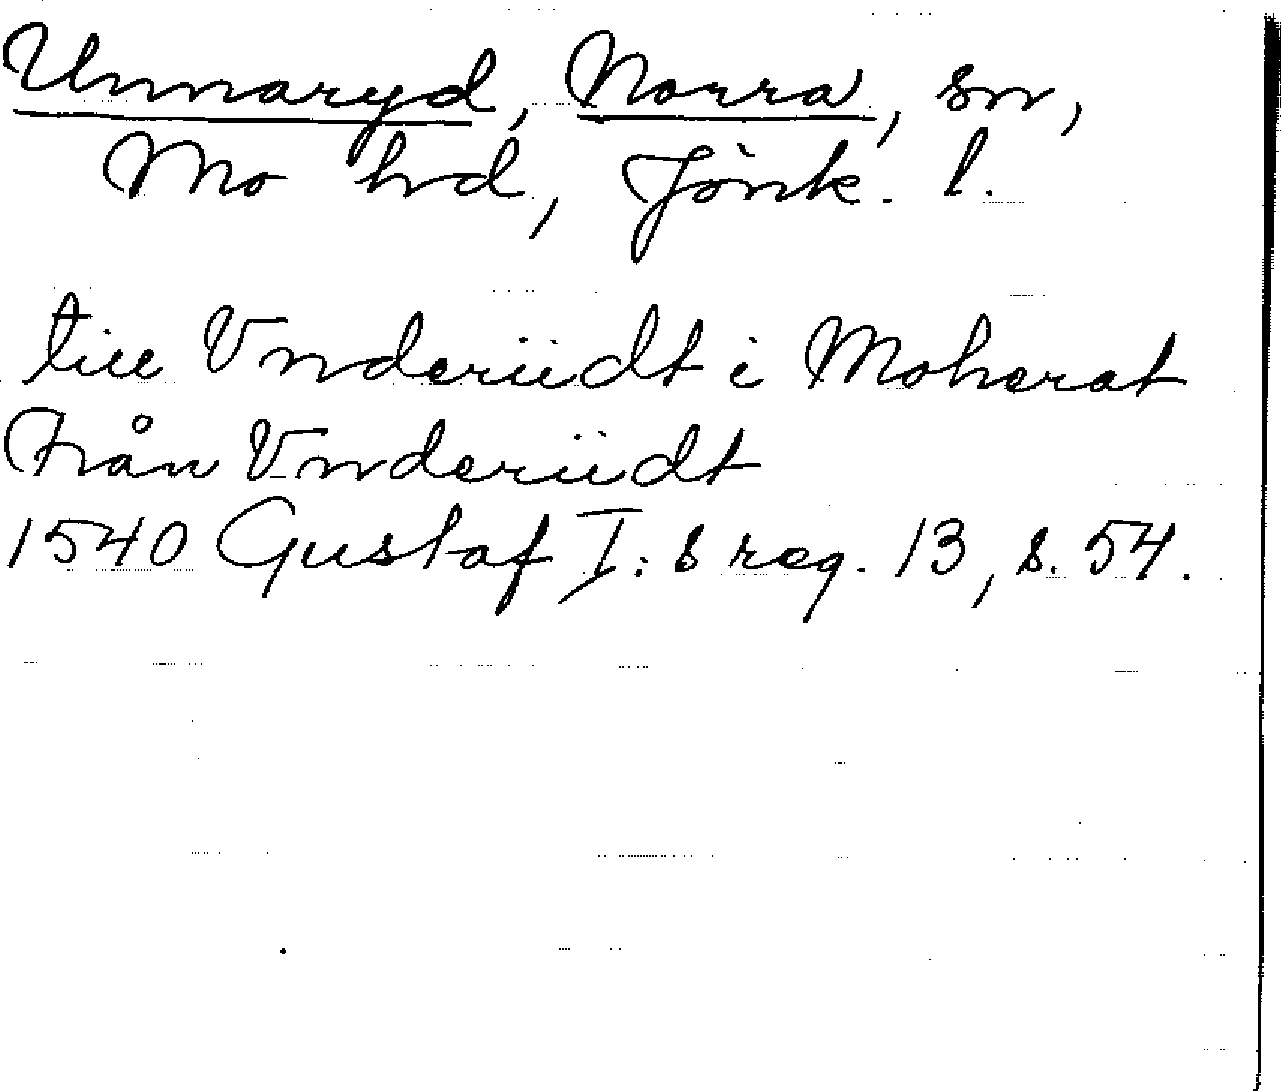 Unnaryd, Norra, sn,
Mo hrd, Jönk. l.
till Vnderiidt i Moherat
Från Vnderiidt
1540 Gustaf I:s reg. 13, s. 54.